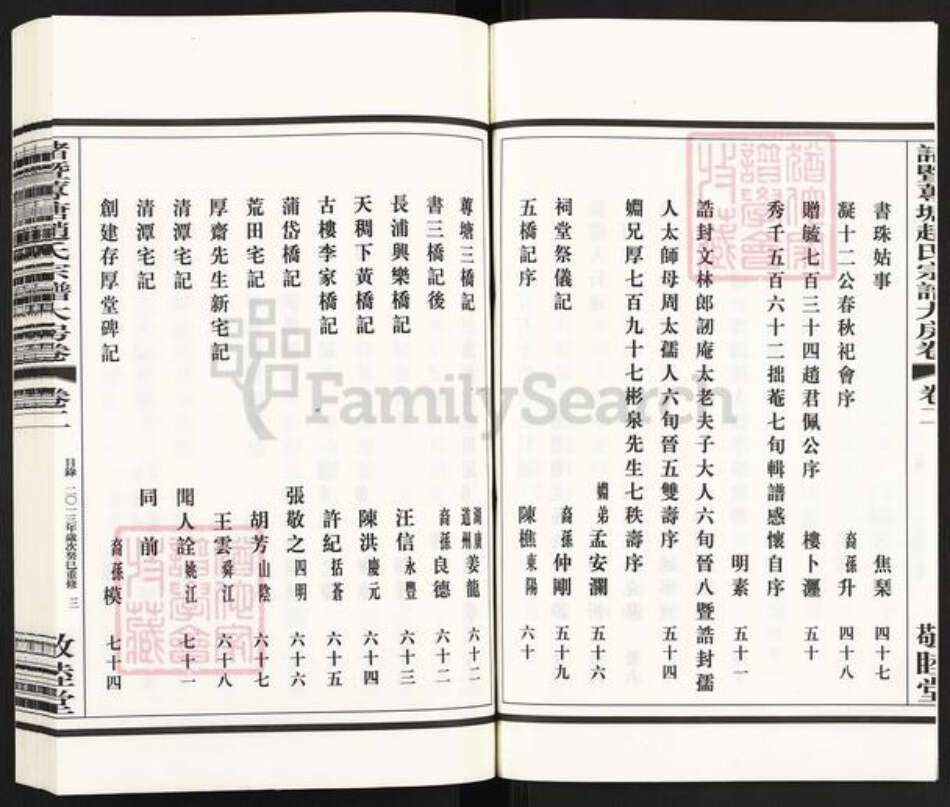 諸暨蓴塘趙氏宗譜大房卷 卷二
敬睦堂
書珠姑事 焦棃 四十七
凝十二公春秋祀會序 裔孫升 四十八
贈毓七百三十四趙君佩公序 樓卜瀍 五十
秀千五百六十二拙菴七旬輯譜感懷自序 明素 五十一
誥封文林郎訒庵太老夫子大人六旬晉八暨誥封孺
人太師母周太孺人六旬晉五雙壽序 五十四
姻兄厚七百九十七彬泉先生七秩壽序 姻弟孟安瀾 五十六
祠堂祭儀記 裔孫仲剛 五十九
五橋記序 陳樵東陽 六十
蓴塘三橋記 湖廣道州姜龍 六十二
書三橋記後 裔孫良德 六十二
長浦興樂橋記 汪信永豐 六十三
天稠下黃橋記 陳洪慶元 六十四
古樓李家橋記 許紀括蒼 六十五
蒲岱橋記 張敬之四明 六十六
荒田宅記 胡芳山陰 六十七
厚齋先生新宅記 王雲舜江 六十八
清潭宅記 聞人詮姚江 七十一
清潭宅記 同前
創建存厚堂碑記 裔孫模 七十四
諸暨蓴塘趙氏宗譜大房卷 卷二
目錄 二〇一三年歲次癸巳重修 三
敬睦堂
FamilySearch